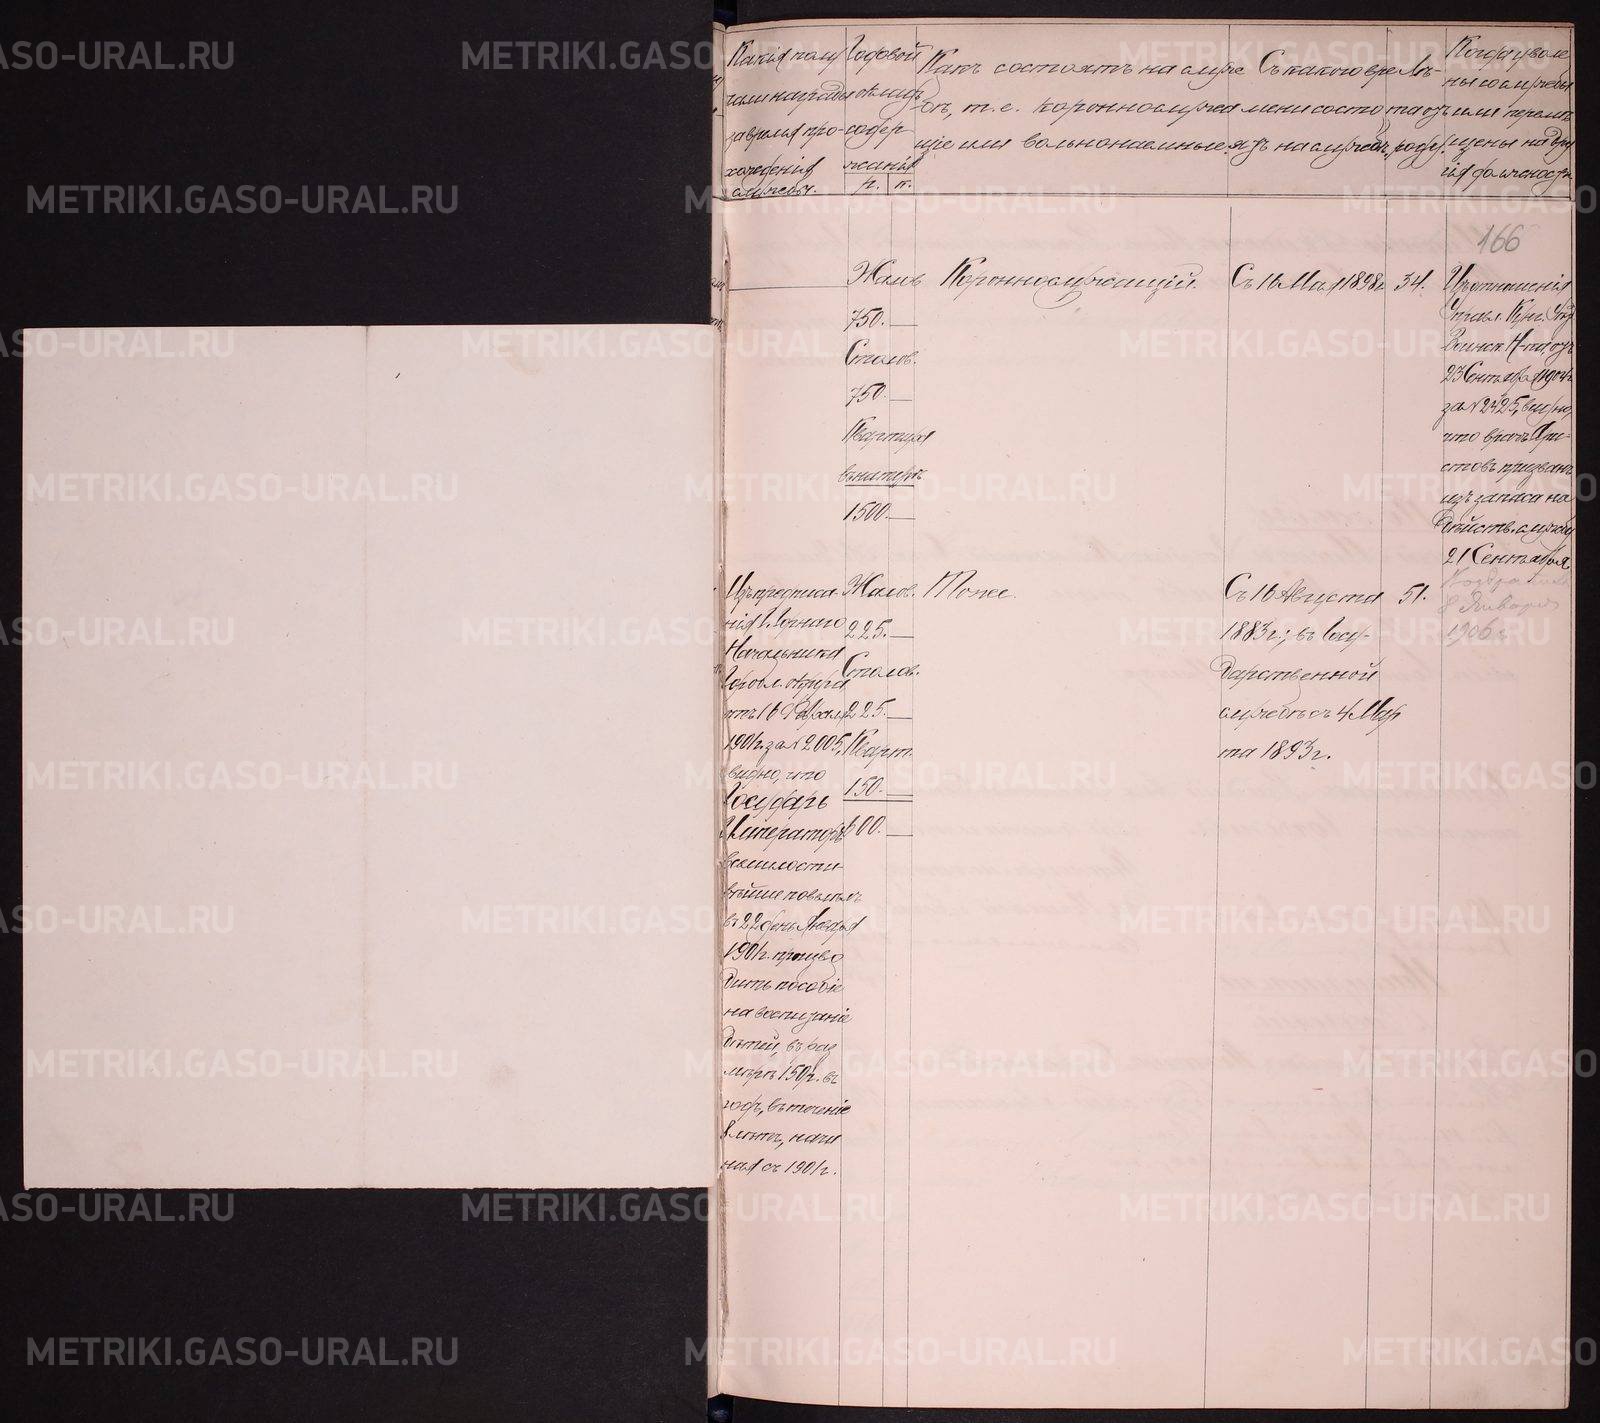 Какія полу
чали награды
за время про-
хожденія
службы.
Годовой
окладъ
содер
жанія
р. к.
Какъ состоятъ на служ
бѣ, т. е. короннослужа
щіе или вольнонаемные.
Съ какого вре
мени состо
ятъ на службѣ.
Лѣ-
та отъ
роду.
Когда уволе
ны со службы
или перемѣ
щены на дру
гія должности
166
Жалов.
750. —
Столов.
750. —
Квартира
въ натурѣ
1500. —
Короннослужащій.
Съ 16 Мая 1898 г.
34.
Изъ отношенія
Управл. Кунг. Уѣзд.
Воинск. Н-ка, отъ
23 Сентября 1904 г.
за № 2425, видно,
что врачъ Хри-
стовъ призванъ
изъ запаса на
дѣйств. службу
21 Сентября
Возвратился
8 Января
1906 г.
Изъ предписа-
нія Г. Горнаго
Начальника
Горобл. округа
отъ 16 Февраля
1901 г. за № 2005,
видно, что
Государь
Императоръ
всемилости-
вѣйше повелѣлъ
въ 22 день Января
1901 г. произво
дить пособіе
на воспитаніе
дѣтей, въ раз
мѣрѣ 150 р. въ
годъ, въ теченіе
8 лѣтъ, начи
ная съ 1901 г.
Жалов.
225. —
Столов.
225. —
Кварт.
150. —
600. —
Тоже.
Съ 16 Августа
1883 г.; въ Госу-
дарственной
службѣ съ 4 Мар
та 1893 г.
51.
METRIKI.GASO-URAL.RU